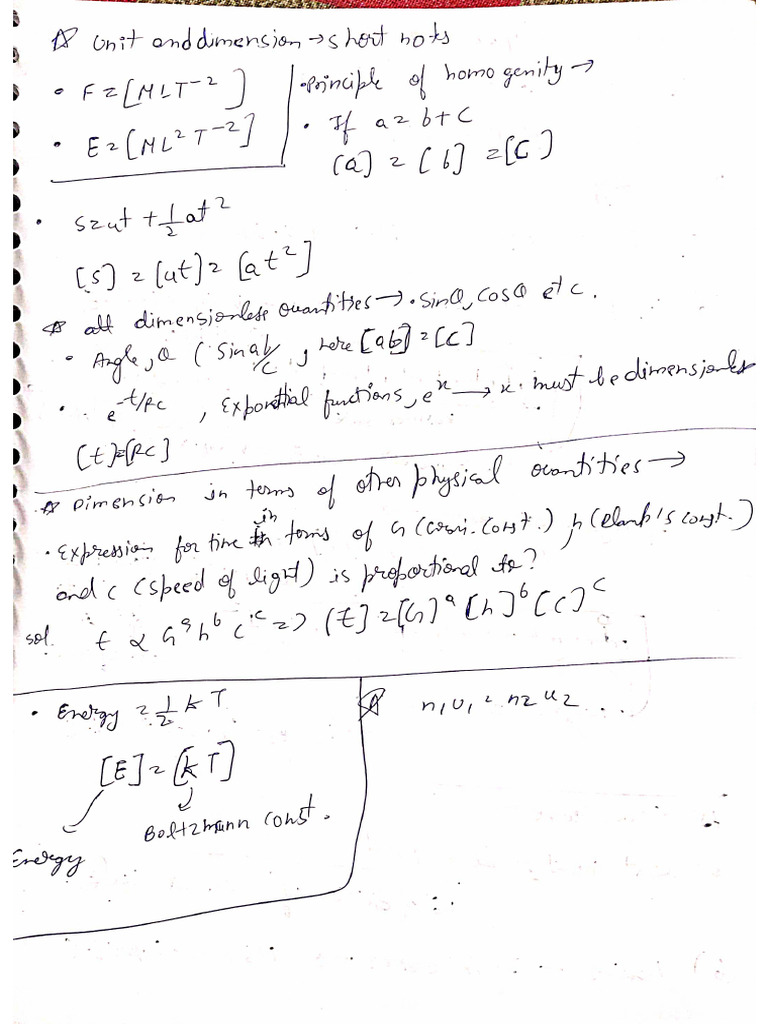 ☆ Unit and dimension → short nots
• F = [MLT⁻²]
• E = [ML²T⁻²]
• Principle of homogenity →
• If a = b + c
[a] = [b] = [c]
• s = ut + ½at²
[s] = [ut] = [at²]
☆ all dimensionless quantities → • sinθ, cosθ etc.
• Angle, θ (sin ab/c, here [ab] = [c]
• e^-t/RC, Exponential functions, e^x → x must be dimensionless
[t] = [RC]
☆ Dimension in terms of other physical quantities →
• Expression for time in terms of G (Const.) h (Plank's const.)
and c (speed of light) is proportional to?
sol. t ∝ G^a h^b c^c => [t] = [G]^a [h]^b [C]^c
• Energy = ½ kT
[E] = [kT]
Boltzmann const.
Energy
☆ n₁u₁ = n₂u₂ ...